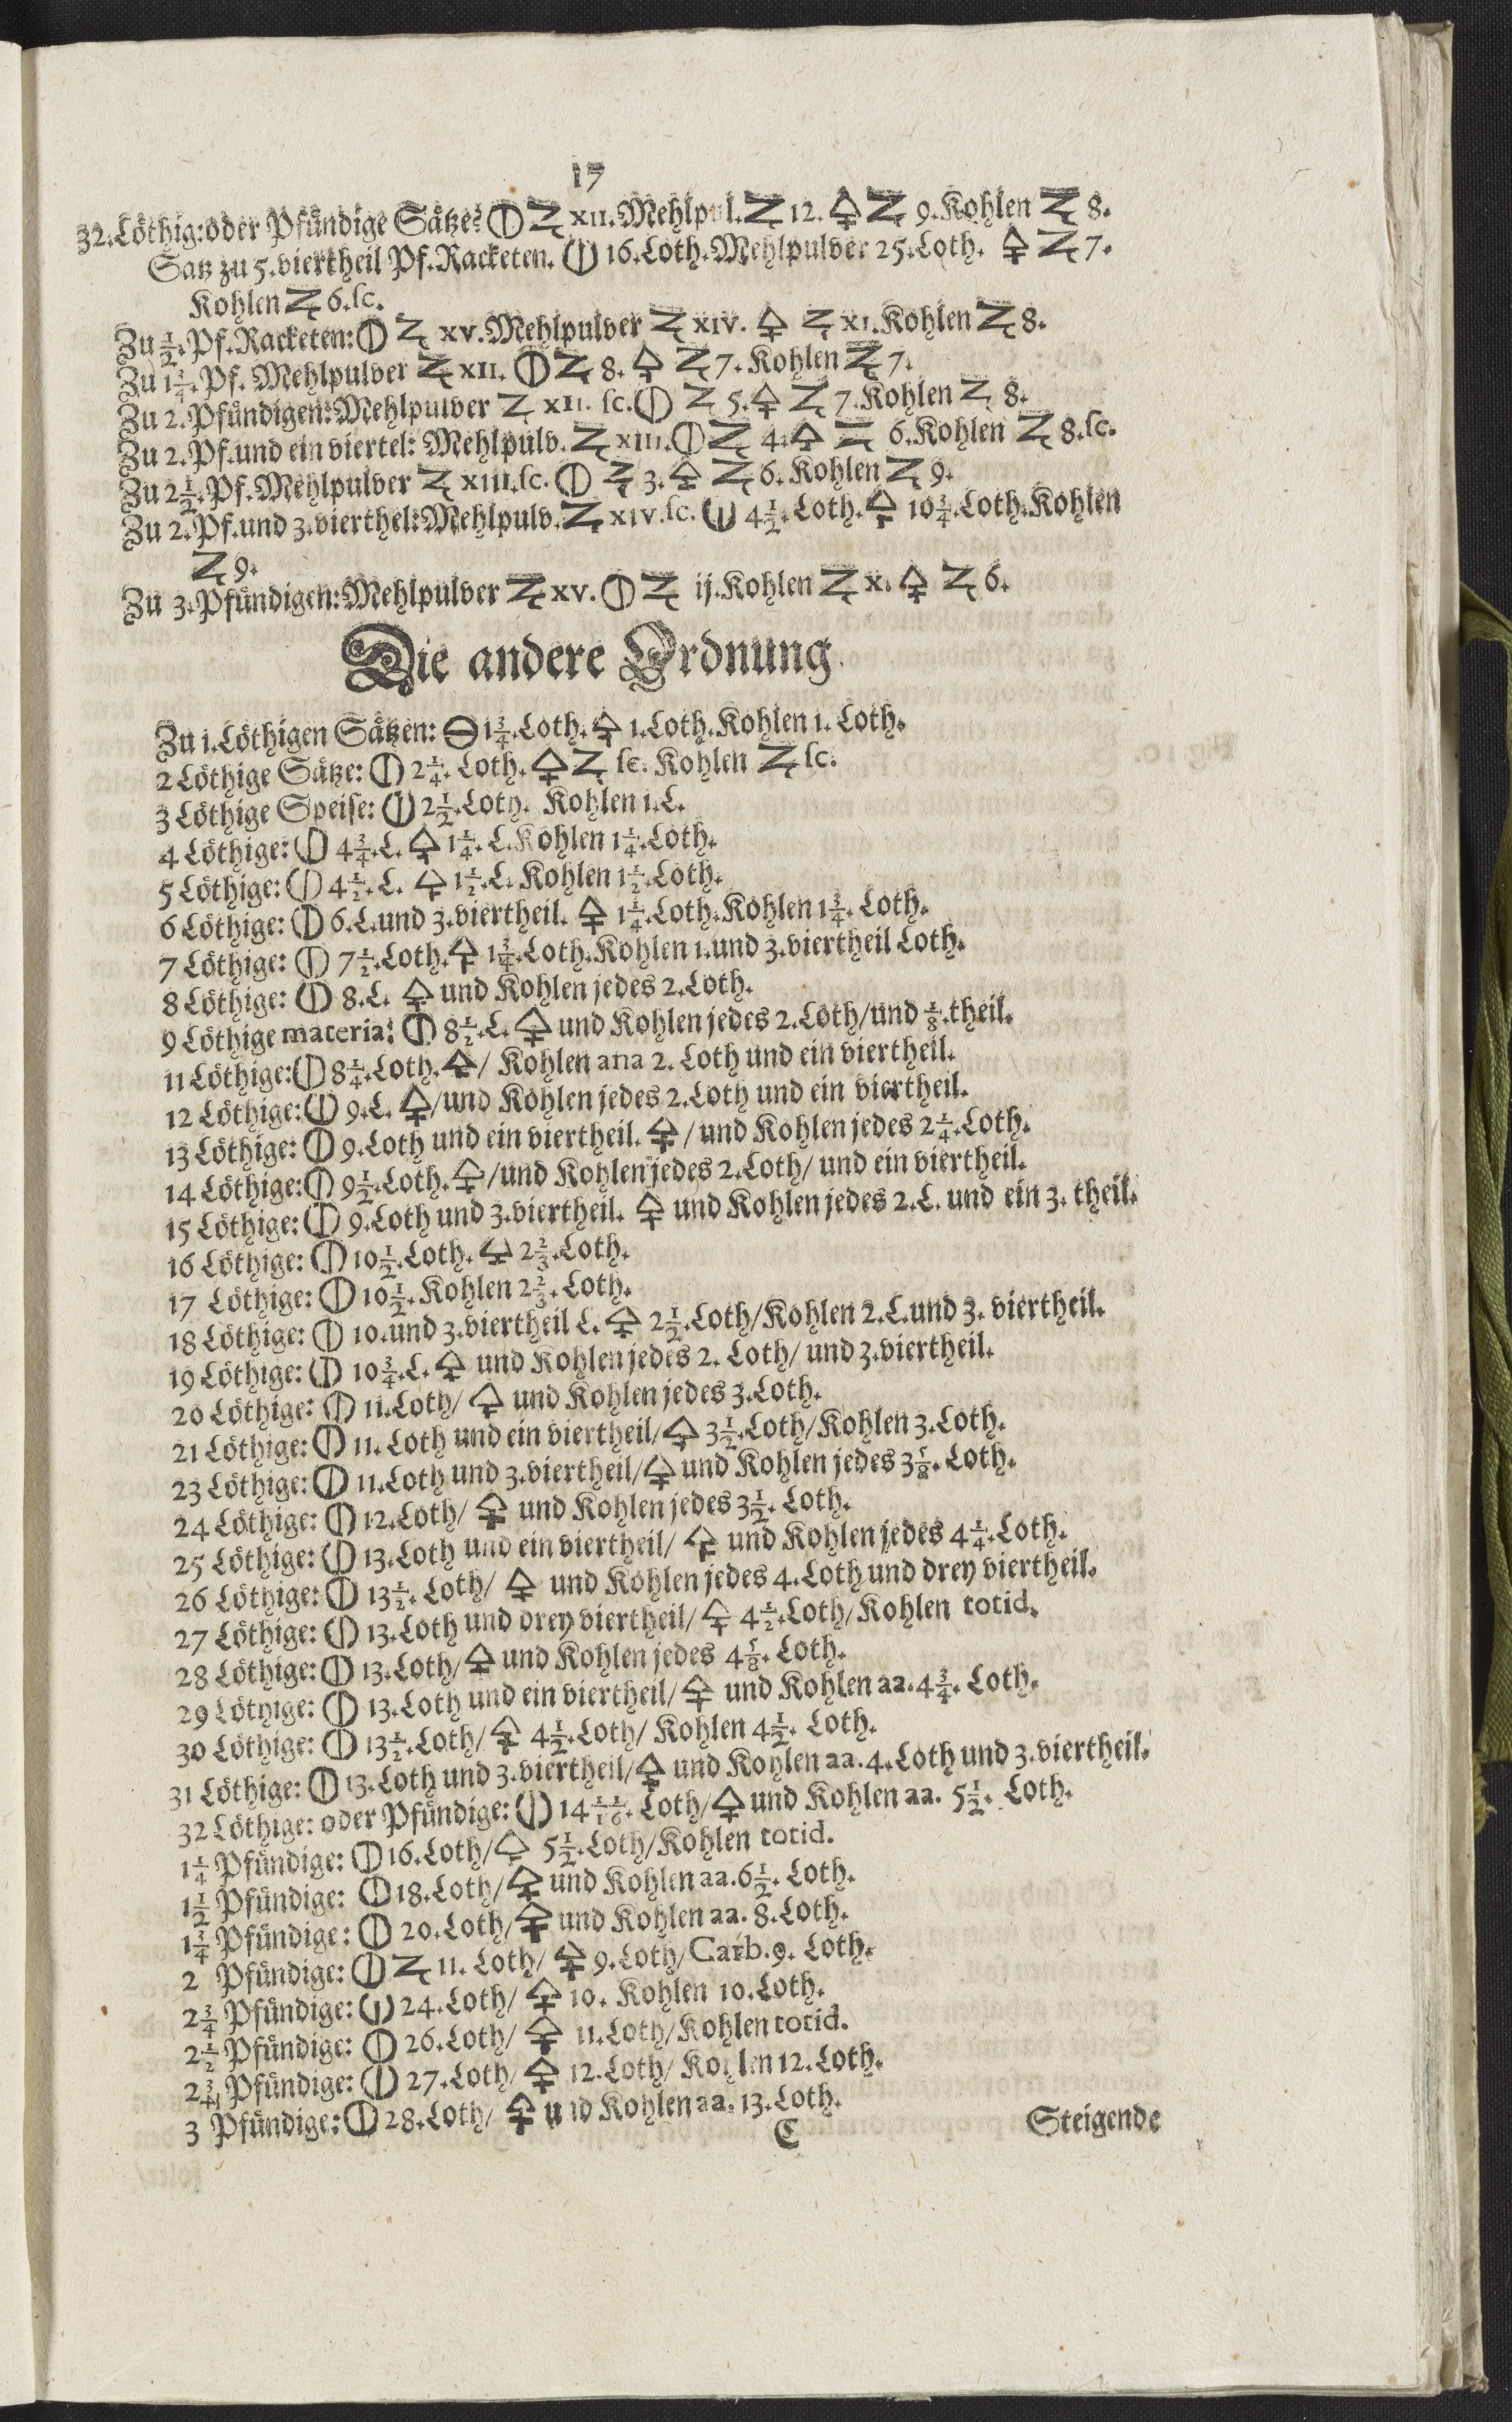 17
32. Löthig: oder Pfündige Sätze: 🜕 ℥ XII. Mehlpul. ℥ 12. 🜍 ℥ 9. Kohlen ℥ 8.
Satz zu 5. viertheil Pf. Racketen. 🜕 16. Loth. Mehlpulver 25. Loth. 🜍 ℥ 7.
Kohlen ℥ 6. ſc.
Zu ½. Pf. Racketen: 🜕 ℥ XV. Mehlpulver ℥ XIV. 🜍 ℥ XI. Kohlen ℥ 8.
Zu 1¾. Pf. Mehlpulver ℥ XII. 🜕 ℥ 8. 🜍 ℥ 7. Kohlen ℥ 7.
Zu 2. Pfündigen: Mehlpulver ℥ XII. ſc. 🜕 ℥ 5. 🜍 ℥ 7. Kohlen ℥ 8.
Zu 2. Pf. und ein viertel: Mehlpulv. ℥ XIII. 🜕 ℥ 4. 🜍 ℥ 6. Kohlen ℥ 8. ſc.
Zu 2½. Pf. Mehlpulver ℥ XIII. ſc. 🜕 ℥ 3. 🜍 ℥ 6. Kohlen ℥ 9.
Zu 2. Pf. und 3. vierthel: Mehlpulv. ℥ XIV. ſc. 🜕 4½. Loth. 🜍 10¾. Loth. Kohlen
℥ 9.
Zu 3. Pfündigen: Mehlpulver ℥ XV. 🜕 ℥ ij. Kohlen ℥ X. 🜍 ℥ 6.
Die andere Ordnung.
Zu 1. Löthigen Sätzen: 🜔 1¾. Loth. 🜍 1. Loth. Kohlen 1. Loth.
2 Löthige Sätze: 🜕 2¼. Loth. 🜍 ℥ ſc. Kohlen ℥ ſc.
3 Löthige Speiſe: 🜕 2½. Loth. Kohlen 1. L.
4 Löthige: 🜕 4¾. L. 🜍 1¼. L. Kohlen 1¼. Loth.
5 Löthige: 🜕 4½. L. 🜍 1½. L. Kohlen 1½. Loth.
6 Löthige: 🜕 6. L. und 3. viertheil. 🜍 1¼. Loth. Kohlen 1¾. Loth.
7 Löthige: 🜕 7½. Loth. 🜍 1¾. Loth. Kohlen 1. und 3. viertheil Loth.
8 Löthige: 🜕 8. L. 🜍 und Kohlen jedes 2. Loth.
9 Löthige materia: 🜕 8½. L. 🜍 und Kohlen jedes 2. Loth/ und ⅛. theil.
11 Löthige: 🜕 8¼. Loth. 🜍/ Kohlen ana 2. Loth und ein viertheil.
12 Löthige: 🜕 9. L. 🜍/ und Kohlen jedes 2. Loth und ein viertheil.
13 Löthige: 🜕 9. Loth und ein viertheil. 🜍/ und Kohlen jedes 2¼. Loth.
14 Löthige: 🜕 9½. Loth. 🜍/ und Kohlen jedes 2. Loth/ und ein viertheil.
15 Löthige: 🜕 9. Loth und 3. viertheil. 🜍 und Kohlen jedes 2. L. und ein 3. theil.
16 Löthige: 🜕 10½. Loth. 🜍 2⅔. Loth.
17 Löthige: 🜕 10½. Kohlen 2⅔. Loth.
18 Löthige: 🜕 10. und 3. viertheil L. 🜍 2½. Loth/ Kohlen 2. L. und 3. viertheil.
19 Löthige: 🜕 10¾. L. 🜍 und Kohlen jedes 2. Loth/ und 3. viertheil.
20 Löthige: 🜕 11. Loth/ 🜍 und Kohlen jedes 3. Loth.
21 Löthige: 🜕 11. Loth und ein viertheil/ 🜍 3½. Loth/ Kohlen 3. Loth.
23 Löthige: 🜕 11. Loth und 3. viertheil/ 🜍 und Kohlen jedes 3⅝. Loth.
24 Löthige: 🜕 12. Loth/ 🜍 und Kohlen jedes 3½. Loth.
25 Löthige: 🜕 13. Loth und ein viertheil/ 🜍 und Kohlen jedes 4¼. Loth.
26 Löthige: 🜕 13½. Loth/ 🜍 und Kohlen jedes 4. Loth und drey viertheil.
27 Löthige: 🜕 13. Loth und drey viertheil/ 🜍 4½. Loth/ Kohlen totid.
28 Löthige: 🜕 13. Loth/ 🜍 und Kohlen jedes 4⅝. Loth.
29 Löthige: 🜕 13. Loth und ein viertheil/ 🜍 und Kohlen aa. 4¾. Loth.
30 Löthige: 🜕 13½. Loth/ 🜍 4½. Loth/ Kohlen 4½. Loth.
31 Löthige: 🜕 13. Loth und 3. viertheil/ 🜍 und Kohlen aa. 4. Loth und 3. viertheil.
32 Löthige: oder Pfündige: 🜕 14 Loth/ 🜍 und Kohlen aa. 5½. Loth.
1¼ Pfündige: 🜕 16. Loth/ 🜍 5½. Loth/ Kohlen totid.
1½ Pfündige: 🜕 18. Loth/ 🜍 und Kohlen aa. 6½. Loth.
1¾ Pfündige: 🜕 20. Loth/ 🜍 und Kohlen aa. 8. Loth.
2 Pfündige: 🜕 ℥ 11. Loth/ 🜍 9. Loth/ Carb. 9. Loth.
2¾ Pfündige: 🜕 24. Loth/ 🜍 10. Kohlen 10. Loth.
2½ Pfündige: 🜕 26. Loth/ 🜍 11. Loth/ Kohlen totid.
2¾ Pfündige: 🜕 27. Loth/ 🜍 12. Loth/ Kohlen 12. Loth.
3 Pfündige: 🜕 28. Loth/ 🜍 und Kohlen aa. 13. Loth.
C Steigende